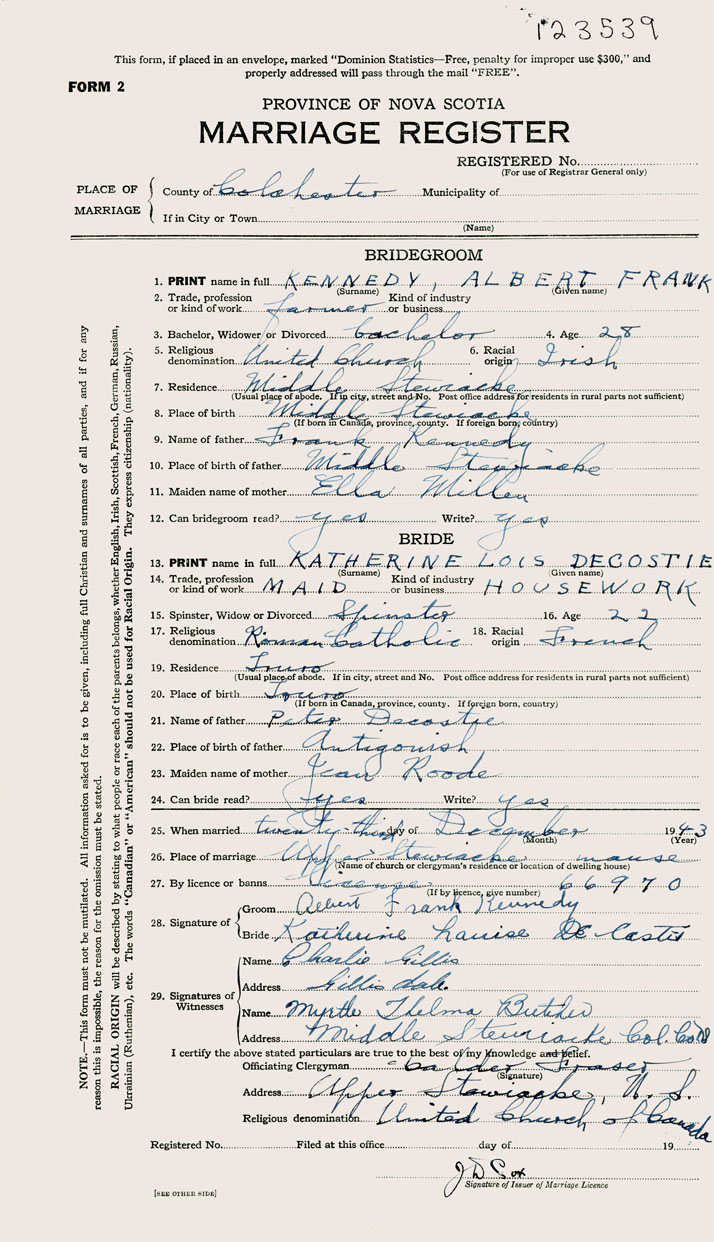 123539
This form, if placed in an envelope, marked "Dominion Statistics—Free, penalty for improper use $300," and
properly addressed will pass through the mail "FREE".
FORM 2
PROVINCE OF NOVA SCOTIA
MARRIAGE REGISTER
REGISTERED No.
(For use of Registrar General only)
PLACE OF MARRIAGE
County of Colchester Municipality of
If in City or Town
(Name)
BRIDEGROOM
1. PRINT name in full KENNEDY, ALBERT FRANK
(Surname) (Given name)
2. Trade, profession or kind of work farmer Kind of industry or business
3. Bachelor, Widower or Divorced bachelor 4. Age 28
5. Religious denomination United Church 6. Racial origin Irish
7. Residence Middle Stewiacke
(Usual place of abode. If in city, street and No. Post office address for residents in rural parts not sufficient)
8. Place of birth Middle Stewiacke
(If born in Canada, province, county. If foreign born, country)
9. Name of father Frank Kennedy
10. Place of birth of father Middle Stewiacke
11. Maiden name of mother Ella Millen
12. Can bridegroom read? yes Write? yes
BRIDE
13. PRINT name in full KATHERINE LOIS DECOSTIE
(Surname) (Given name)
14. Trade, profession or kind of work MAID Kind of industry or business HOUSEWORK
15. Spinster, Widow or Divorced Spinster 16. Age 22
17. Religious denomination Roman Catholic 18. Racial origin French
19. Residence Truro
(Usual place of abode. If in city, street and No. Post office address for residents in rural parts not sufficient)
20. Place of birth Truro
(If born in Canada, province, county. If foreign born, country)
21. Name of father Peter Decostie
22. Place of birth of father Antigonish
23. Maiden name of mother Jean Roode
24. Can bride read? yes Write? yes
25. When married twenty-third day of December 1943
(Month) (Year)
26. Place of marriage Upper Stewiacke manse
(Name of church or clergyman's residence or location of dwelling house)
27. By licence or banns license 66970
(If by licence, give number)
28. Signature of
Groom Albert Frank Kennedy
Bride Katherine Louise De Costie
29. Signatures of Witnesses
Name Charlie Gillis
Address Gillis dale
Name Myrtle Thelma Butcher
Address Middle Stewiacke Col. Co. NS
I certify the above stated particulars are true to the best of my knowledge and belief.
Officiating Clergyman Calder Fraser
(Signature)
Address Upper Stewiacke, N. S.
Religious denomination United Church of Canada
Registered No. Filed at this office day of 19
J D Cox
Signature of Issuer of Marriage Licence
[SEE OTHER SIDE]
NOTE.—This form must not be mutilated. All information asked for is to be given, including full Christian and surnames of all parties, and if for any
reason this is impossible, the reason for the omission must be stated.
RACIAL ORIGIN will be described by stating to what people or race each of the parents belongs, whether English, Irish, Scottish, French, German, Russian,
Ukrainian (Ruthenian), etc. The words "Canadian" or "American" should not be used for Racial Origin. They express citizenship (nationality).